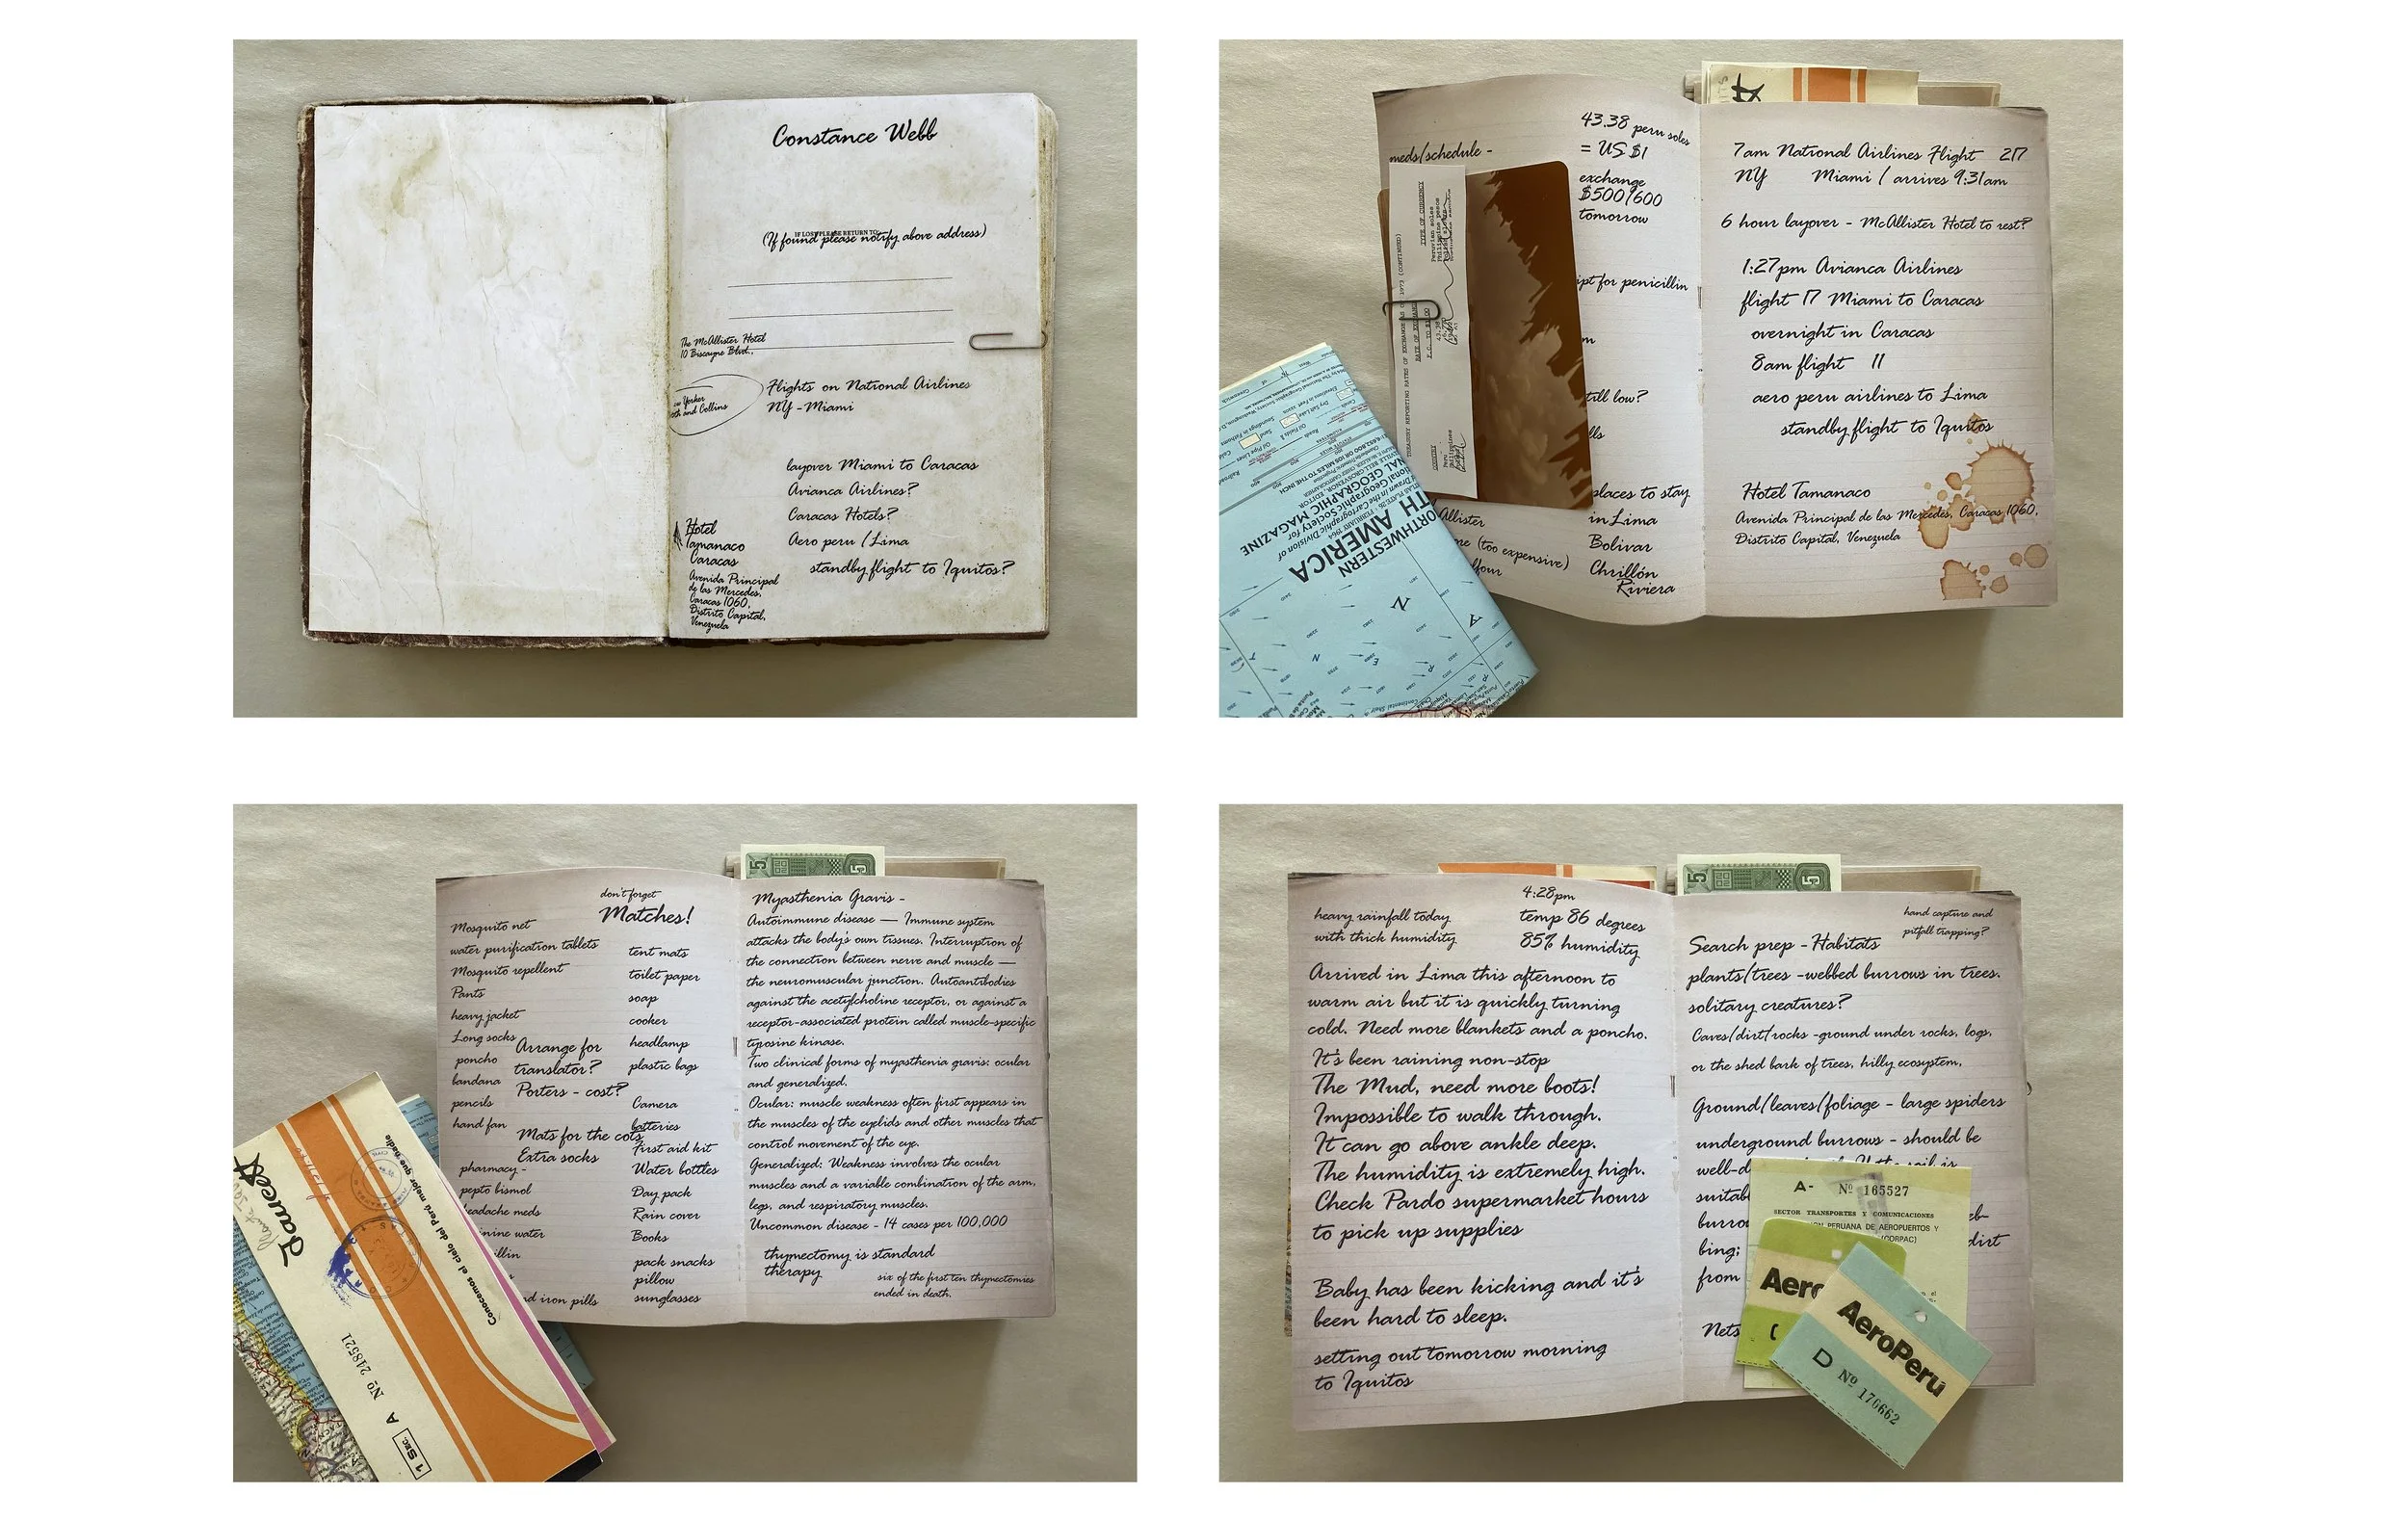 Constance Webb
IF LOST PLEASE RETURN TO
(If found please notify above address)
The McAllister Hotel
10 Biscayne Blvd.,
Yorker
and Collins
Flights on National Airlines
NY - Miami
layover Miami to Caracas
Avianca Airlines?
Caracas Hotels?
Aero peru / Lima
standby flight to Iquitos?
Hotel
Tamanaco
Caracas
Avenida Principal
de las Mercedes,
Caracas 1060,
Distrito Capital,
Venezuela
meds/schedule -
43.38 peru soles
= US $1
exchange
$500/600
tomorrow
for penicillin
low?
places to stay
in Lima
Bolivar
Chrillón
Riviera
Allister
(too expensive)
TREASURY REPORTING RATES OF EXCHANGE AS OF 1973 (CONTINUED)
COUNTRY
RATE OF EXCHANGE
TYPE OF CURRENCY
Peru
43.38
Peruvian soles
Philippines
Philippine pesos
NORTHWESTERN
AMERICA
GEOGRAPHIC MAGAZINE
7am National Airlines Flight 217
NY Miami / arrives 9:31am
6 hour layover - McAllister Hotel to rest?
1:27pm Avianca Airlines
flight 17 Miami to Caracas
overnight in Caracas
8am flight 11
aero peru airlines to Lima
standby flight to Iquitos
Hotel Tamanaco
Avenida Principal de las Mercedes, Caracas 1060,
Distrito Capital, Venezuela
don't forget
Matches!
Mosquito net
water purification tablets
Mosquito repellent
Pants
heavy jacket
Long socks
poncho
bandana
pencils
hand fan
Arrange for
translator?
Porters - cost?
Mats for the cots
Extra socks
pharmacy -
pepto bismol
headache meds
water
iron pills
tent mats
toilet paper
soap
cooker
headlamp
plastic bags
Camera
batteries
First aid kit
Water bottles
Day pack
Rain cover
Books
pack snacks
pillow
sunglasses
Faucett
Conocemos el cielo del Perú mejor que nadie
Nº 218521
A
1 SEC.
5
5
Myasthenia Gravis -
Autoimmune disease — Immune system
attacks the body's own tissues. Interruption of
the connection between nerve and muscle —
the neuromuscular junction. Autoantibodies
against the acetylcholine receptor, or against a
receptor-associated protein called muscle-specific
tyrosine kinase.
Two clinical forms of myasthenia gravis: ocular
and generalized.
Ocular: muscle weakness often first appears in
the muscles of the eyelids and other muscles that
control movement of the eye.
Generalized: Weakness involves the ocular
muscles and a variable combination of the arm,
legs, and respiratory muscles.
Uncommon disease - 14 cases per 100,000
thymectomy is standard
therapy
six of the first ten thymectomies
ended in death.
4:28pm
heavy rainfall today
with thick humidity
temp 86 degrees
85% humidity
Arrived in Lima this afternoon to
warm air but it is quickly turning
cold. Need more blankets and a poncho.
It's been raining non-stop
The Mud, need more boots!
Impossible to walk through.
It can go above ankle deep.
The humidity is extremely high.
Check Pardo supermarket hours
to pick up supplies
Baby has been kicking and it's
been hard to sleep.
setting out tomorrow morning
to Iquitos
5
5
hand capture and
pitfall trapping?
Search prep - Habitats
plants/trees - webbed burrows in trees.
solitary creatures?
Caves/dirt/rocks - ground under rocks, logs,
or the shed bark of trees, hilly ecosystem,
Ground/leaves/foliage - large spiders
underground burrows - should be
bing;
dirt
from
Nets
A- Nº 165527
SECTOR TRANSPORTES Y COMUNICACIONES
PERUANA DE AEROPUERTOS Y
(CORPAC)
Aero
AeroPerú
D Nº 176662